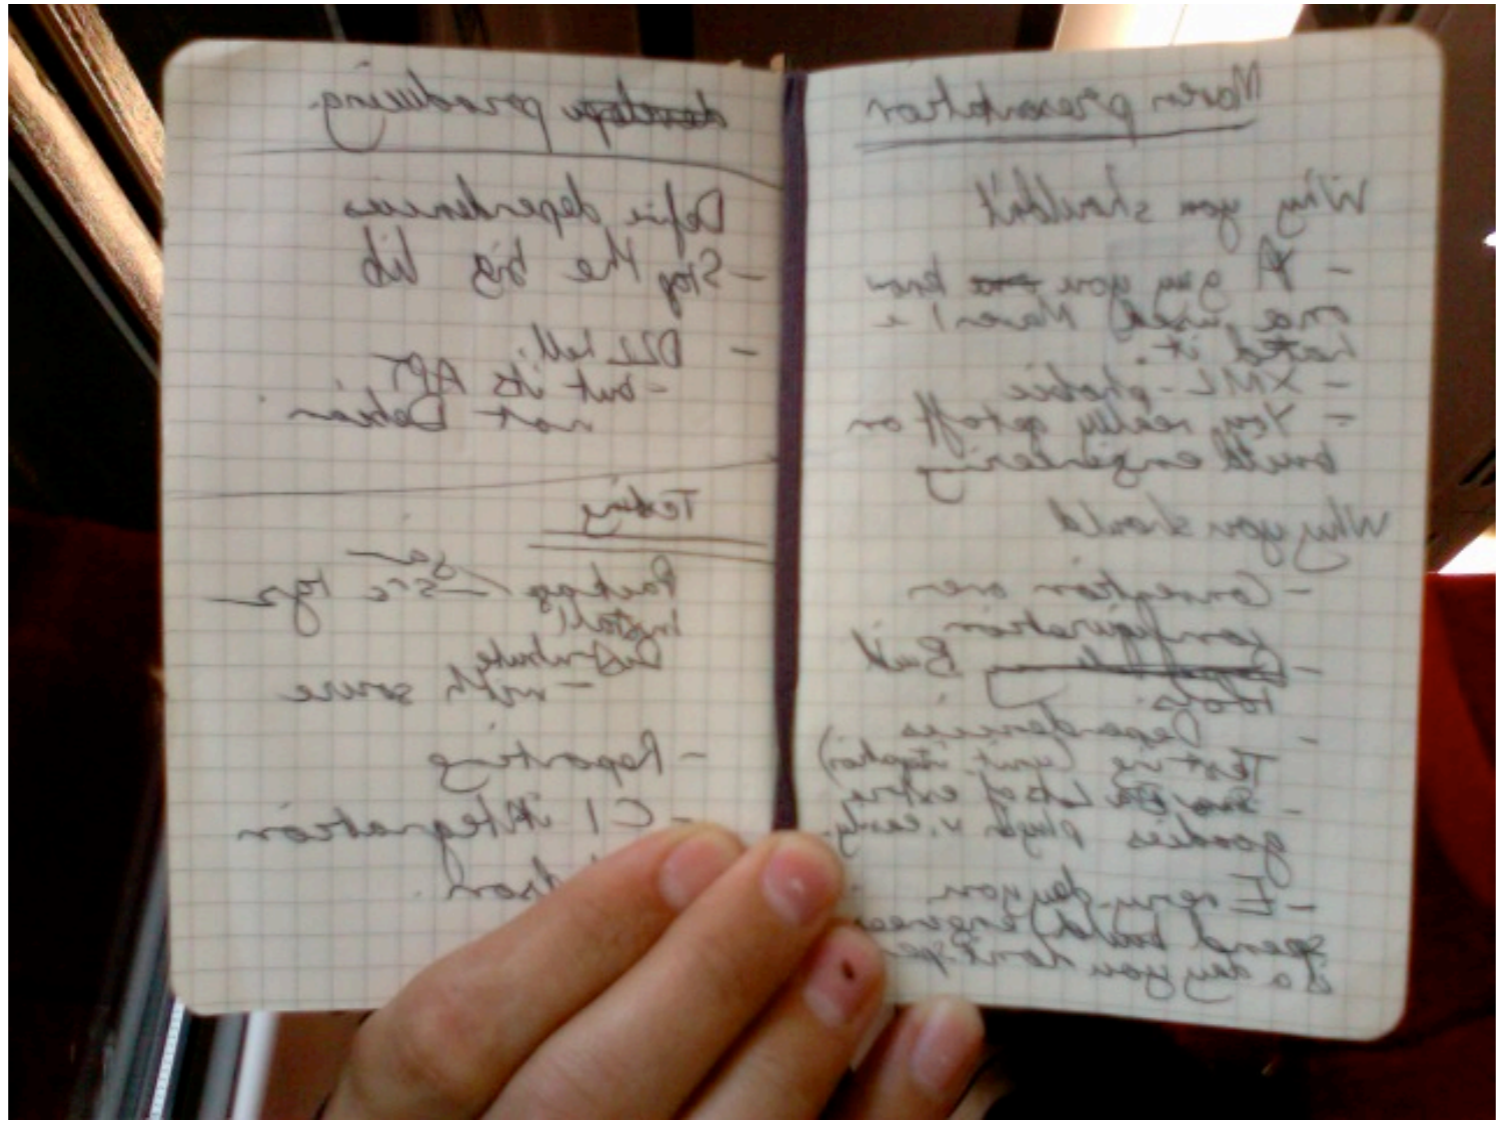 Maven presentation
Why you shouldn't
- A guy you know
once used Maven &
hated it.
- XML-phobic
- You really get off on
build engineering
Why you should
- Convention over
configuration
- Build
- Dependencies
Testing (unit,
- Lots of extra
goodies
- Every day you
spend build engineer
is a day you don't
producing
Define dependencies
- Stop the big lib
- DLL hell.
- but its APT
not Debian
Testing
Package jar
src tgz
Install
Distribute
- with source
- Reporting
- CI integration